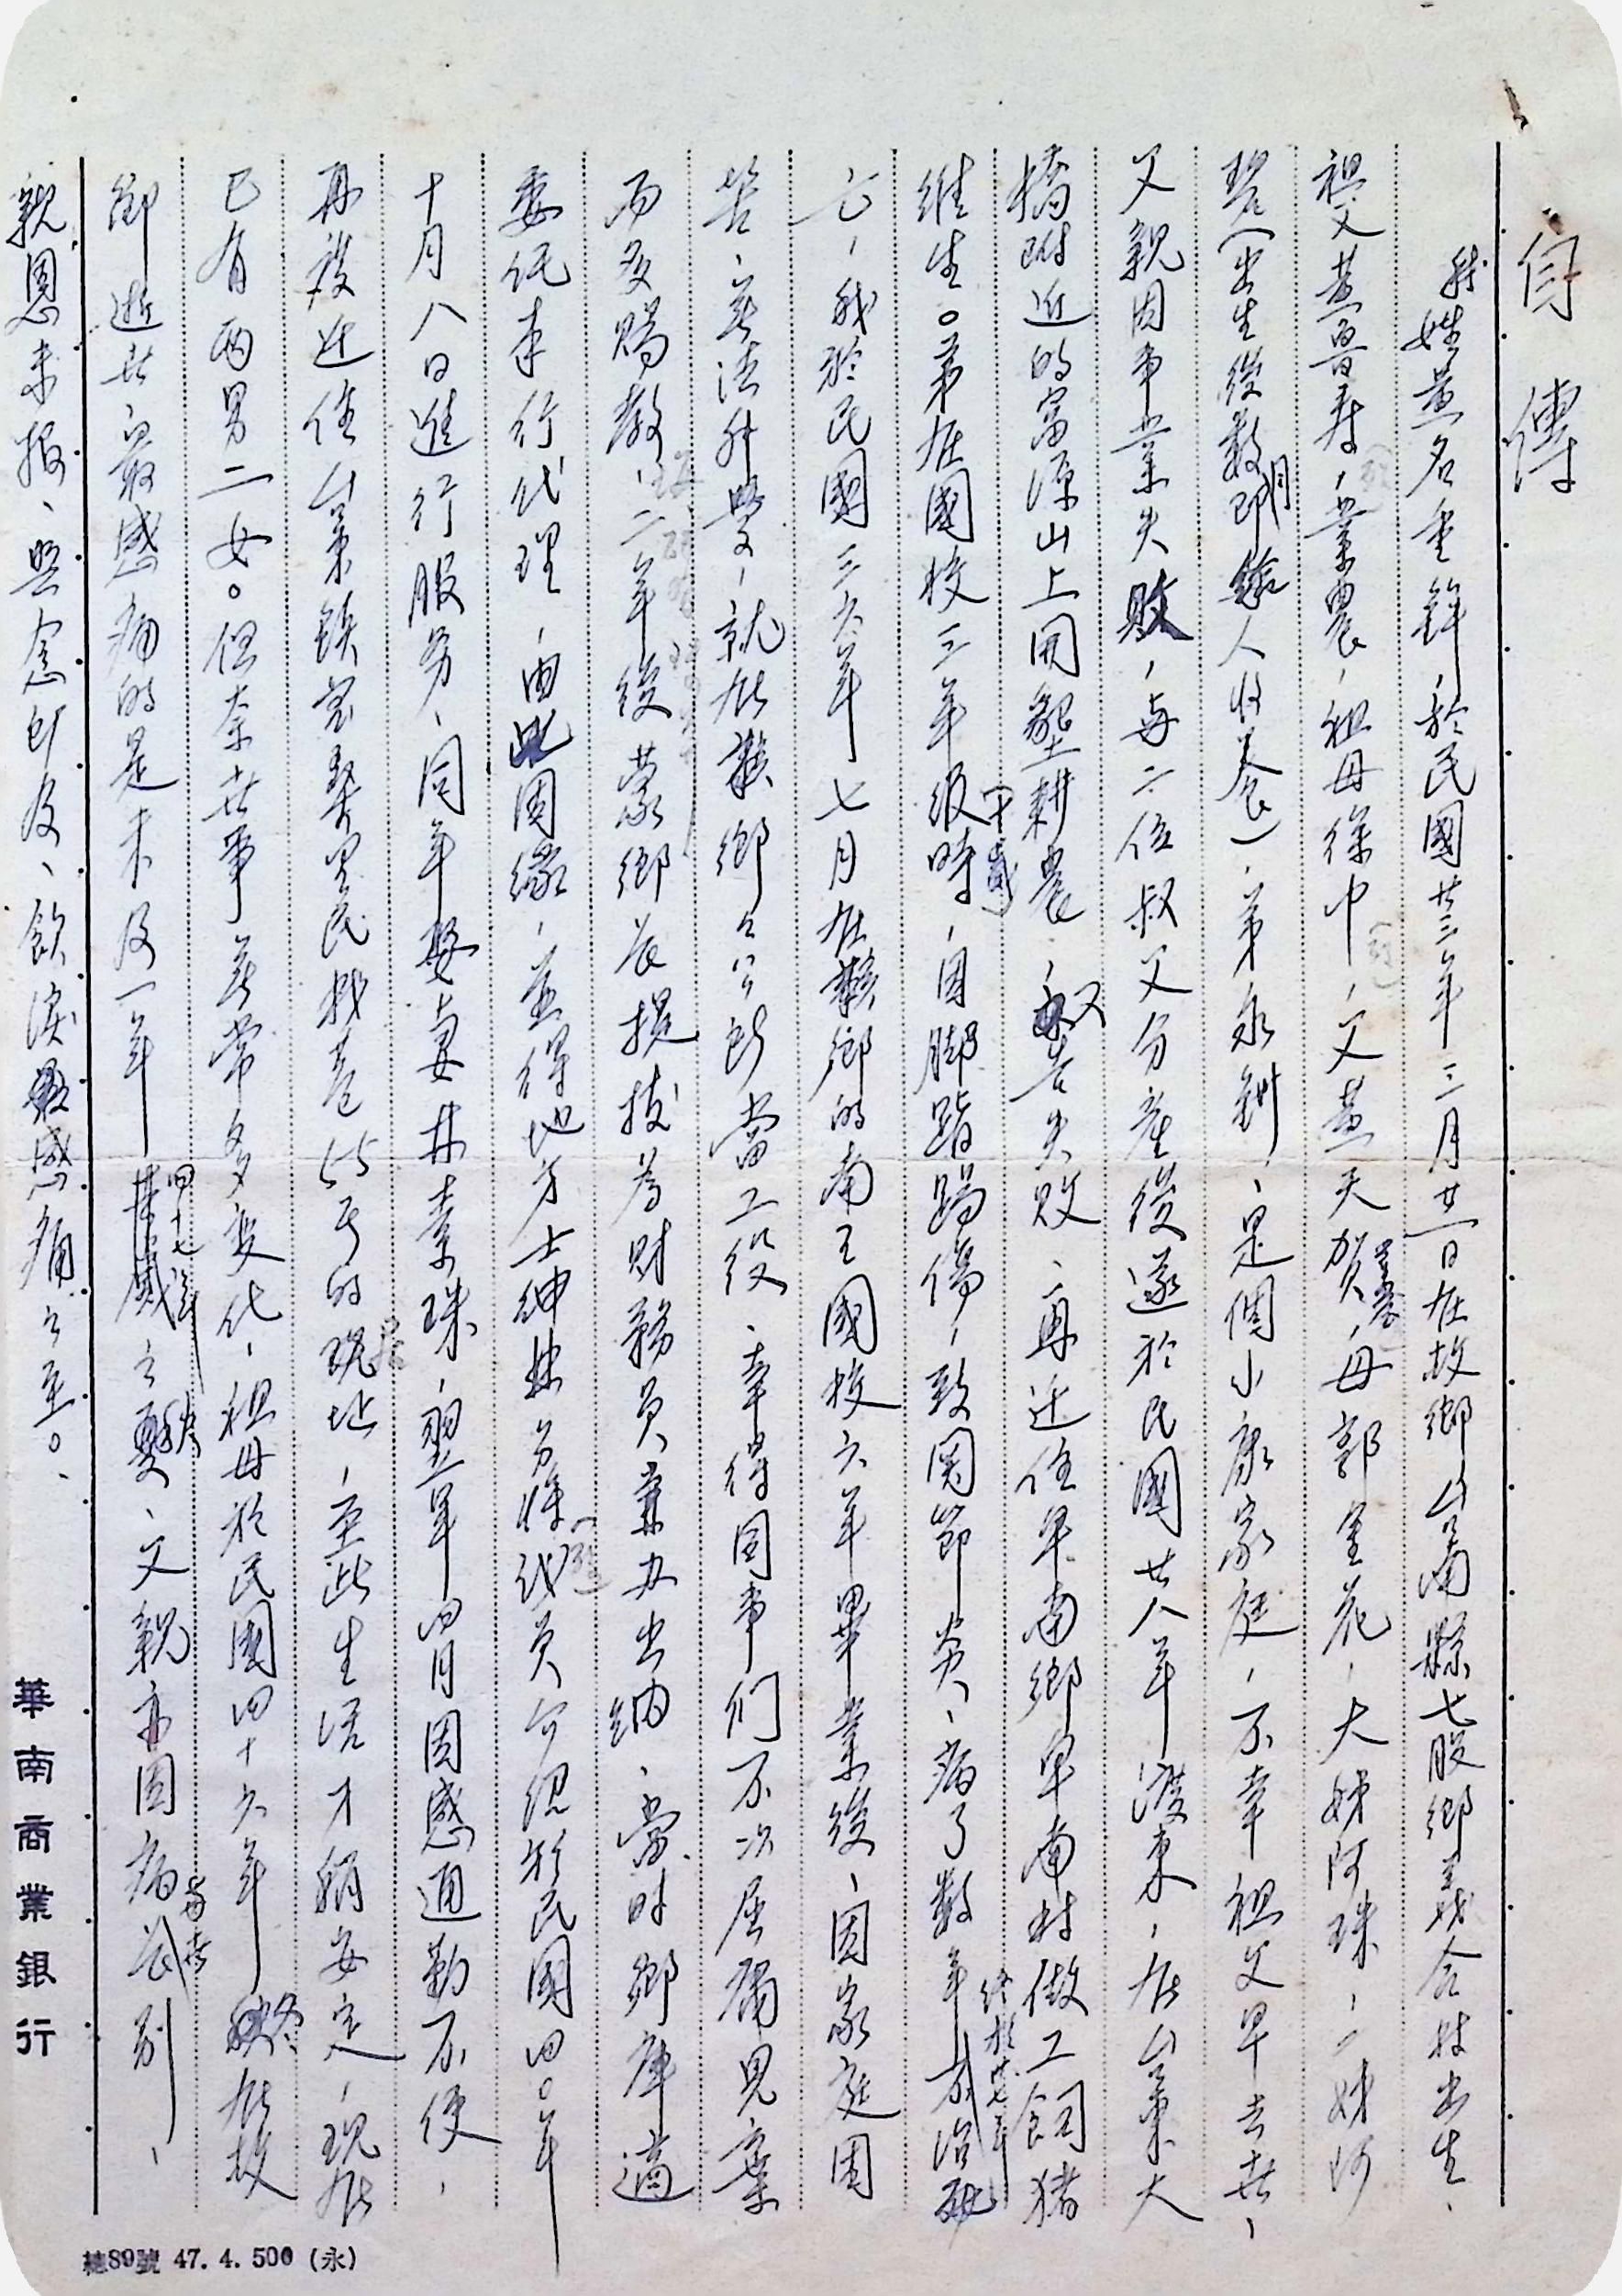 自傳
我姓黃名重鋒，於民國廿三年三月廿一日在故鄉台南縣七股鄉義合村出生、
祖父黃晋春，業農，祖母徐中，父黃天賀，母郭笑花，大妹阿珠，二妹阿
碧（出生後數月即給人收養）、弟永利，是個小康家庭，不幸祖父早去世，
父親因事業失敗，與二位叔父分產後遂於民國廿八年渡東，在台東大
橋附近的富源山上開墾耕農，又告失敗、再迁住卑南鄉卑南村做工飼猪
維生。弟在國校三年級時（十歲），因脚踏踢傷，致関節炎、病了數年，終於卅七年不治死
亡，我於民國三六年七月在賴鄉的南王國校六年畢業後、因家庭困
苦、無法升學，就在該鄉公所當工役、幸得同事们不次屈痛見棄
而多賜教，二年後蒙鄉長提拔為財務員兼办出納、當時鄉庫適
委託本行代理，由此因緣，並得地方士紳林另將代員介紹於民國四〇年
十月八日進行服务、同年娶妻林素珠，翌年四月因感通勤不便，
再發迁住台東鎮寶桑里民权巷55号的現址，至此生活才稍安定，現在
已有兩男二女。但奈世事無常多变化，祖母於民國四十六年冬在故
鄉逝世，最感痛的是未及一年 四十七 之 父親亦因病長別 與世、
親恩未报、每念即及、飲淚最感痛之至。
華南商業銀行
總89號 47. 4. 500 (永)